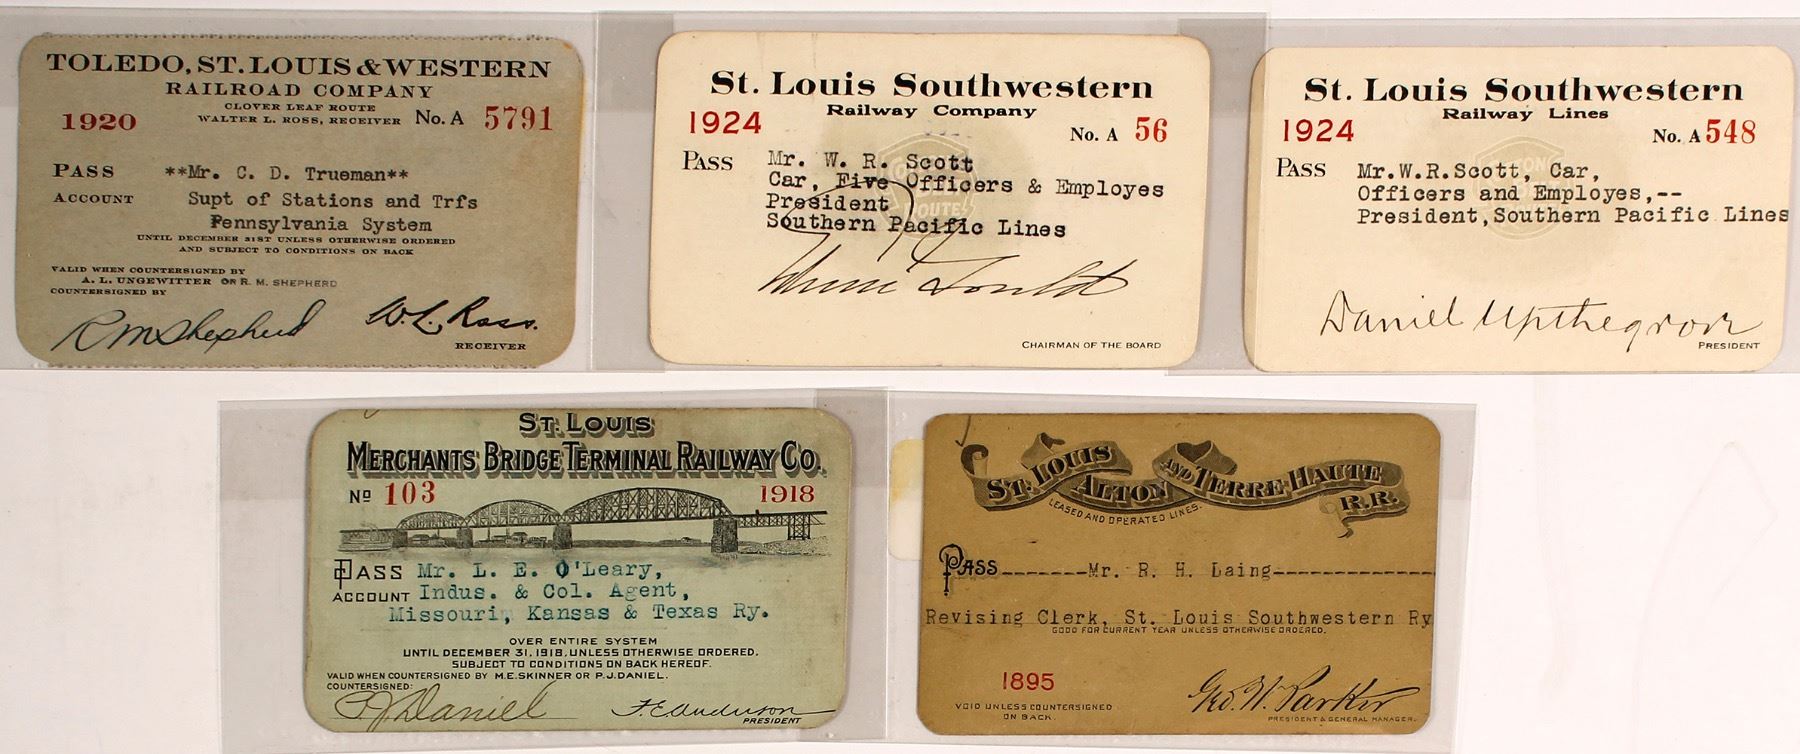 TOLEDO, ST. LOUIS & WESTERN
RAILROAD COMPANY
CLOVER LEAF ROUTE
WALTER L. ROSS, RECEIVER
1920
No. A 5791
PASS **Mr. C. D. Trueman**
ACCOUNT Supt of Stations and Trfs
Pennsylvania System
UNTIL DECEMBER 31ST UNLESS OTHERWISE ORDERED
AND SUBJECT TO CONDITIONS ON BACK
VALID WHEN COUNTERSIGNED BY
A. L. UNGEWITTER OR R. M. SHEPHERD
COUNTERSIGNED BY
R M Shepherd
W. L. Ross.
RECEIVER
St. Louis Southwestern
Railway Company
1924
No. A 56
PASS Mr. W. R. Scott
Car, Five Officers & Employes
President
Southern Pacific Lines
ROUTE
Gould
CHAIRMAN OF THE BOARD
St. Louis Southwestern
Railway Lines
1924
No. A 548
PASS Mr.W.R.Scott, Car,
Officers and Employes,--
President, Southern Pacific Lines
Daniel Upthegrove
PRESIDENT
ST. LOUIS
MERCHANTS BRIDGE TERMINAL RAILWAY CO.
No 103
1918
PASS Mr. L. E. O'Leary,
ACCOUNT Indus. & Col. Agent,
Missouri, Kansas & Texas Ry.
OVER ENTIRE SYSTEM
UNTIL DECEMBER 31, 1918, UNLESS OTHERWISE ORDERED.
SUBJECT TO CONDITIONS ON BACK HEREOF.
VALID WHEN COUNTERSIGNED BY M.E. SKINNER OR P.J. DANIEL.
COUNTERSIGNED:
P J Daniel
PRESIDENT
ST. LOUIS ALTON AND TERRE-HAUTE R.R.
LEASED AND OPERATED LINES.
PASS-------Mr. R. H. Laing-------------
Revising Clerk, St. Louis Southwestern Ry
GOOD FOR CURRENT YEAR UNLESS OTHERWISE ORDERED.
1895
VOID UNLESS COUNTERSIGNED
ON BACK.
Geo. W. Parker
PRESIDENT & GENERAL MANAGER.